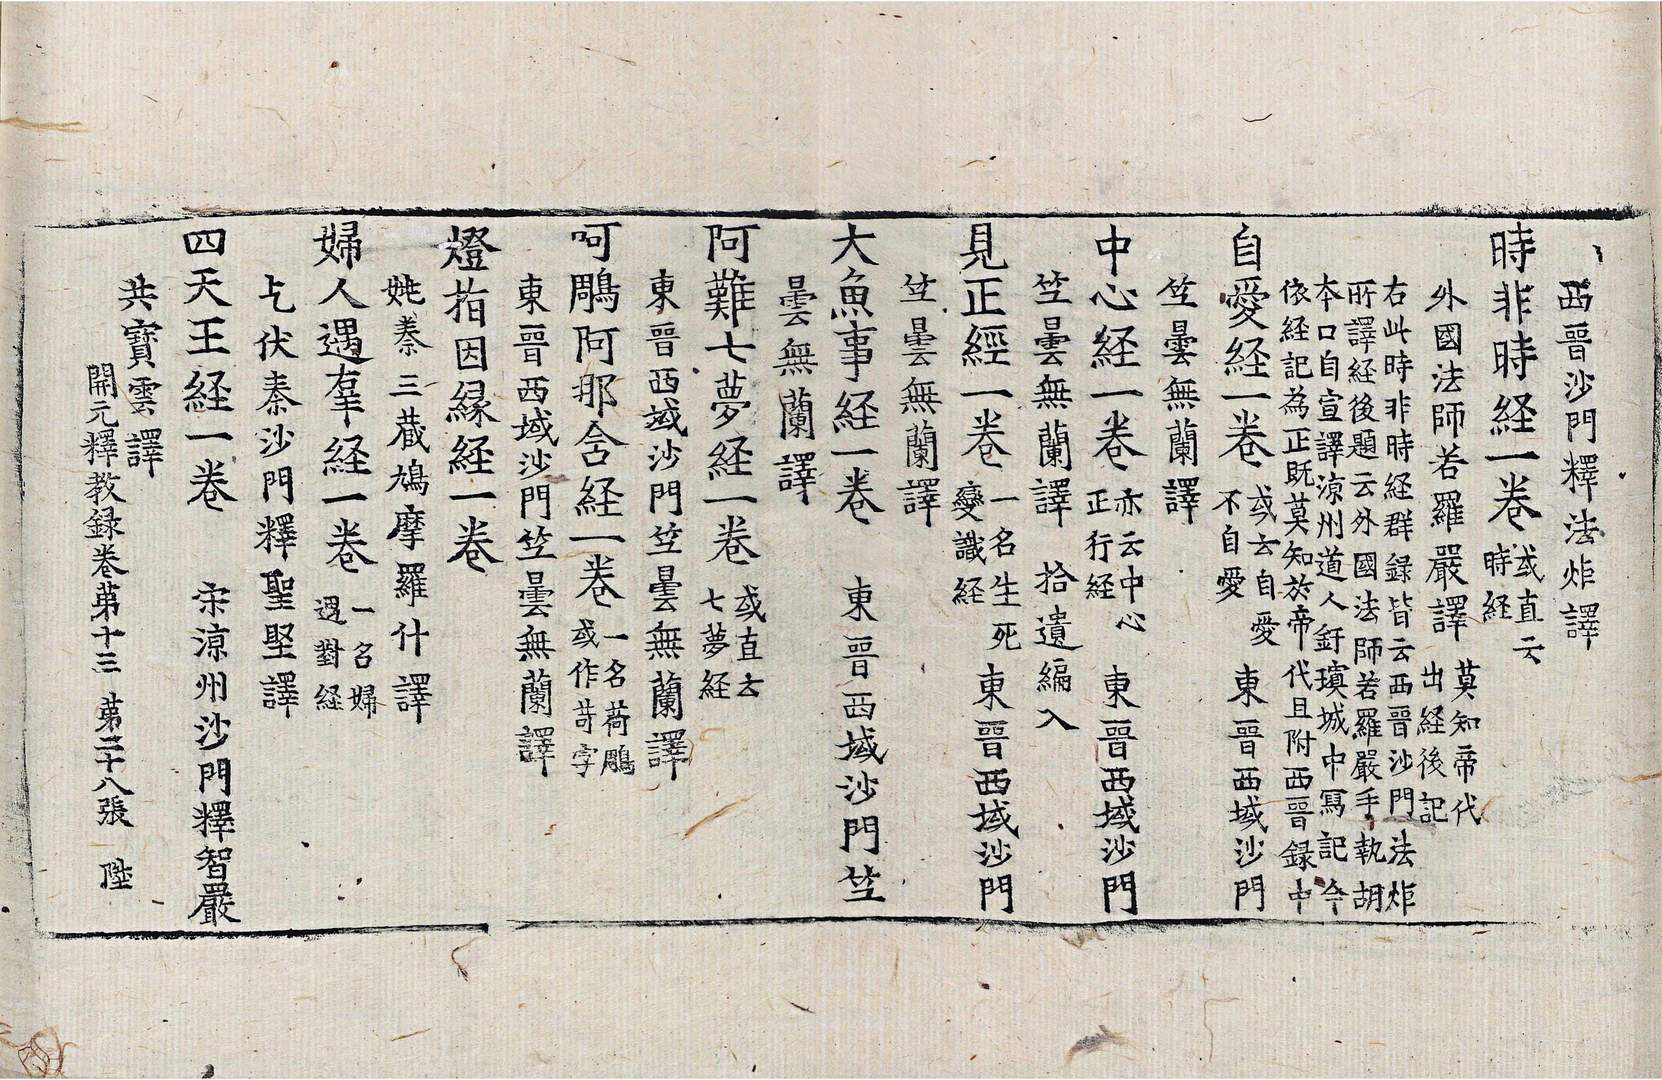 西晉沙門釋法炬譯
時非時経一卷 或直云時経
外國法師若羅嚴譯 莫知帝代出経後記
右此時非時経群録皆云西晉沙門法炬
所譯経後題云外國法師若羅嚴手執胡
本口自宣譯涼州道人釪瑱城中冩記今
依経記為正既莫知於帝代且附西晉録中
自愛経一卷 或云自愛不自愛 東晉西域沙門
竺曇無蘭譯
中心経一卷 亦云中心正行経 東晉西域沙門
竺曇無蘭譯 拾遺編入
見正經一卷 一名生死變識経 東晉西域沙門
竺曇無蘭譯
大魚事経一卷 東晉西域沙門竺
曇無蘭譯
阿難七夢経一卷 或直云七夢経
東晉西域沙門竺曇無蘭譯
呵鵰阿那含経一卷 一名荷鵰或作苛字
東晉西域沙門竺曇無蘭譯
燈指因縁経一卷
姚秦三藏鳩摩羅什譯
婦人遇辜経一卷 一名婦遇對経
乞伏秦沙門釋聖堅譯
四天王経一卷 宋涼州沙門釋智嚴
共寶雲譯
開元釋教録卷第十三 第二十八張 陞